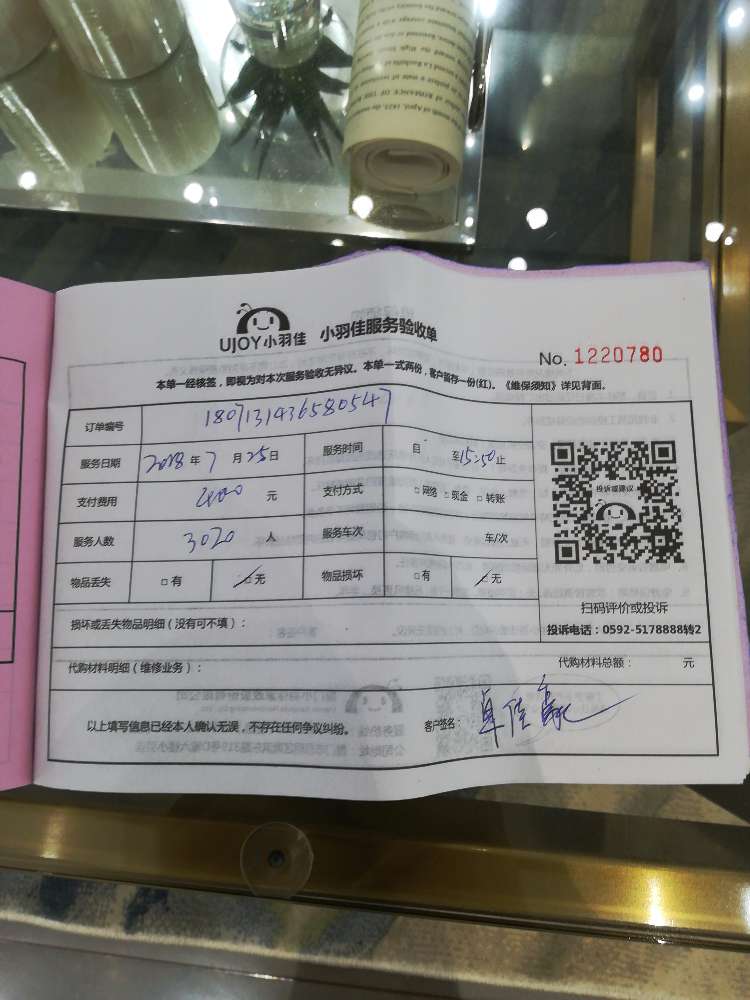 UJOY小羽佳 小羽佳服务验收单
No. 1220780
本单一经核签，即视为对本次服务验收无异议。本单一式两份，客户留存一份(红)。《维保须知》详见背面。
订单编号 1807131436580547
服务日期 2018年7月25日 服务时间 自 至15:50止
支付费用 400 元 支付方式 □网络 □现金 □转账
服务人数 3020 人 服务车次 车/次
物品丢失 □有 □无 物品损坏 □有 □无
投诉或建议
扫码评价或投诉
损坏或丢失物品明细（没有可不填）：
投诉电话：0592-5178888转2
代购材料明细（维修业务）： 代购材料总额： 元
以上填写信息已经本人确认无误，不存在任何争议纠纷。 客户签名：